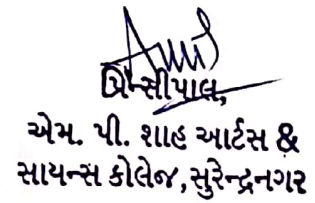 પ્રિન્સીપાલ,
એમ. પી. શાહ આર્ટસ &
સાયન્સ કોલેજ,સુરેન્દ્રનગર